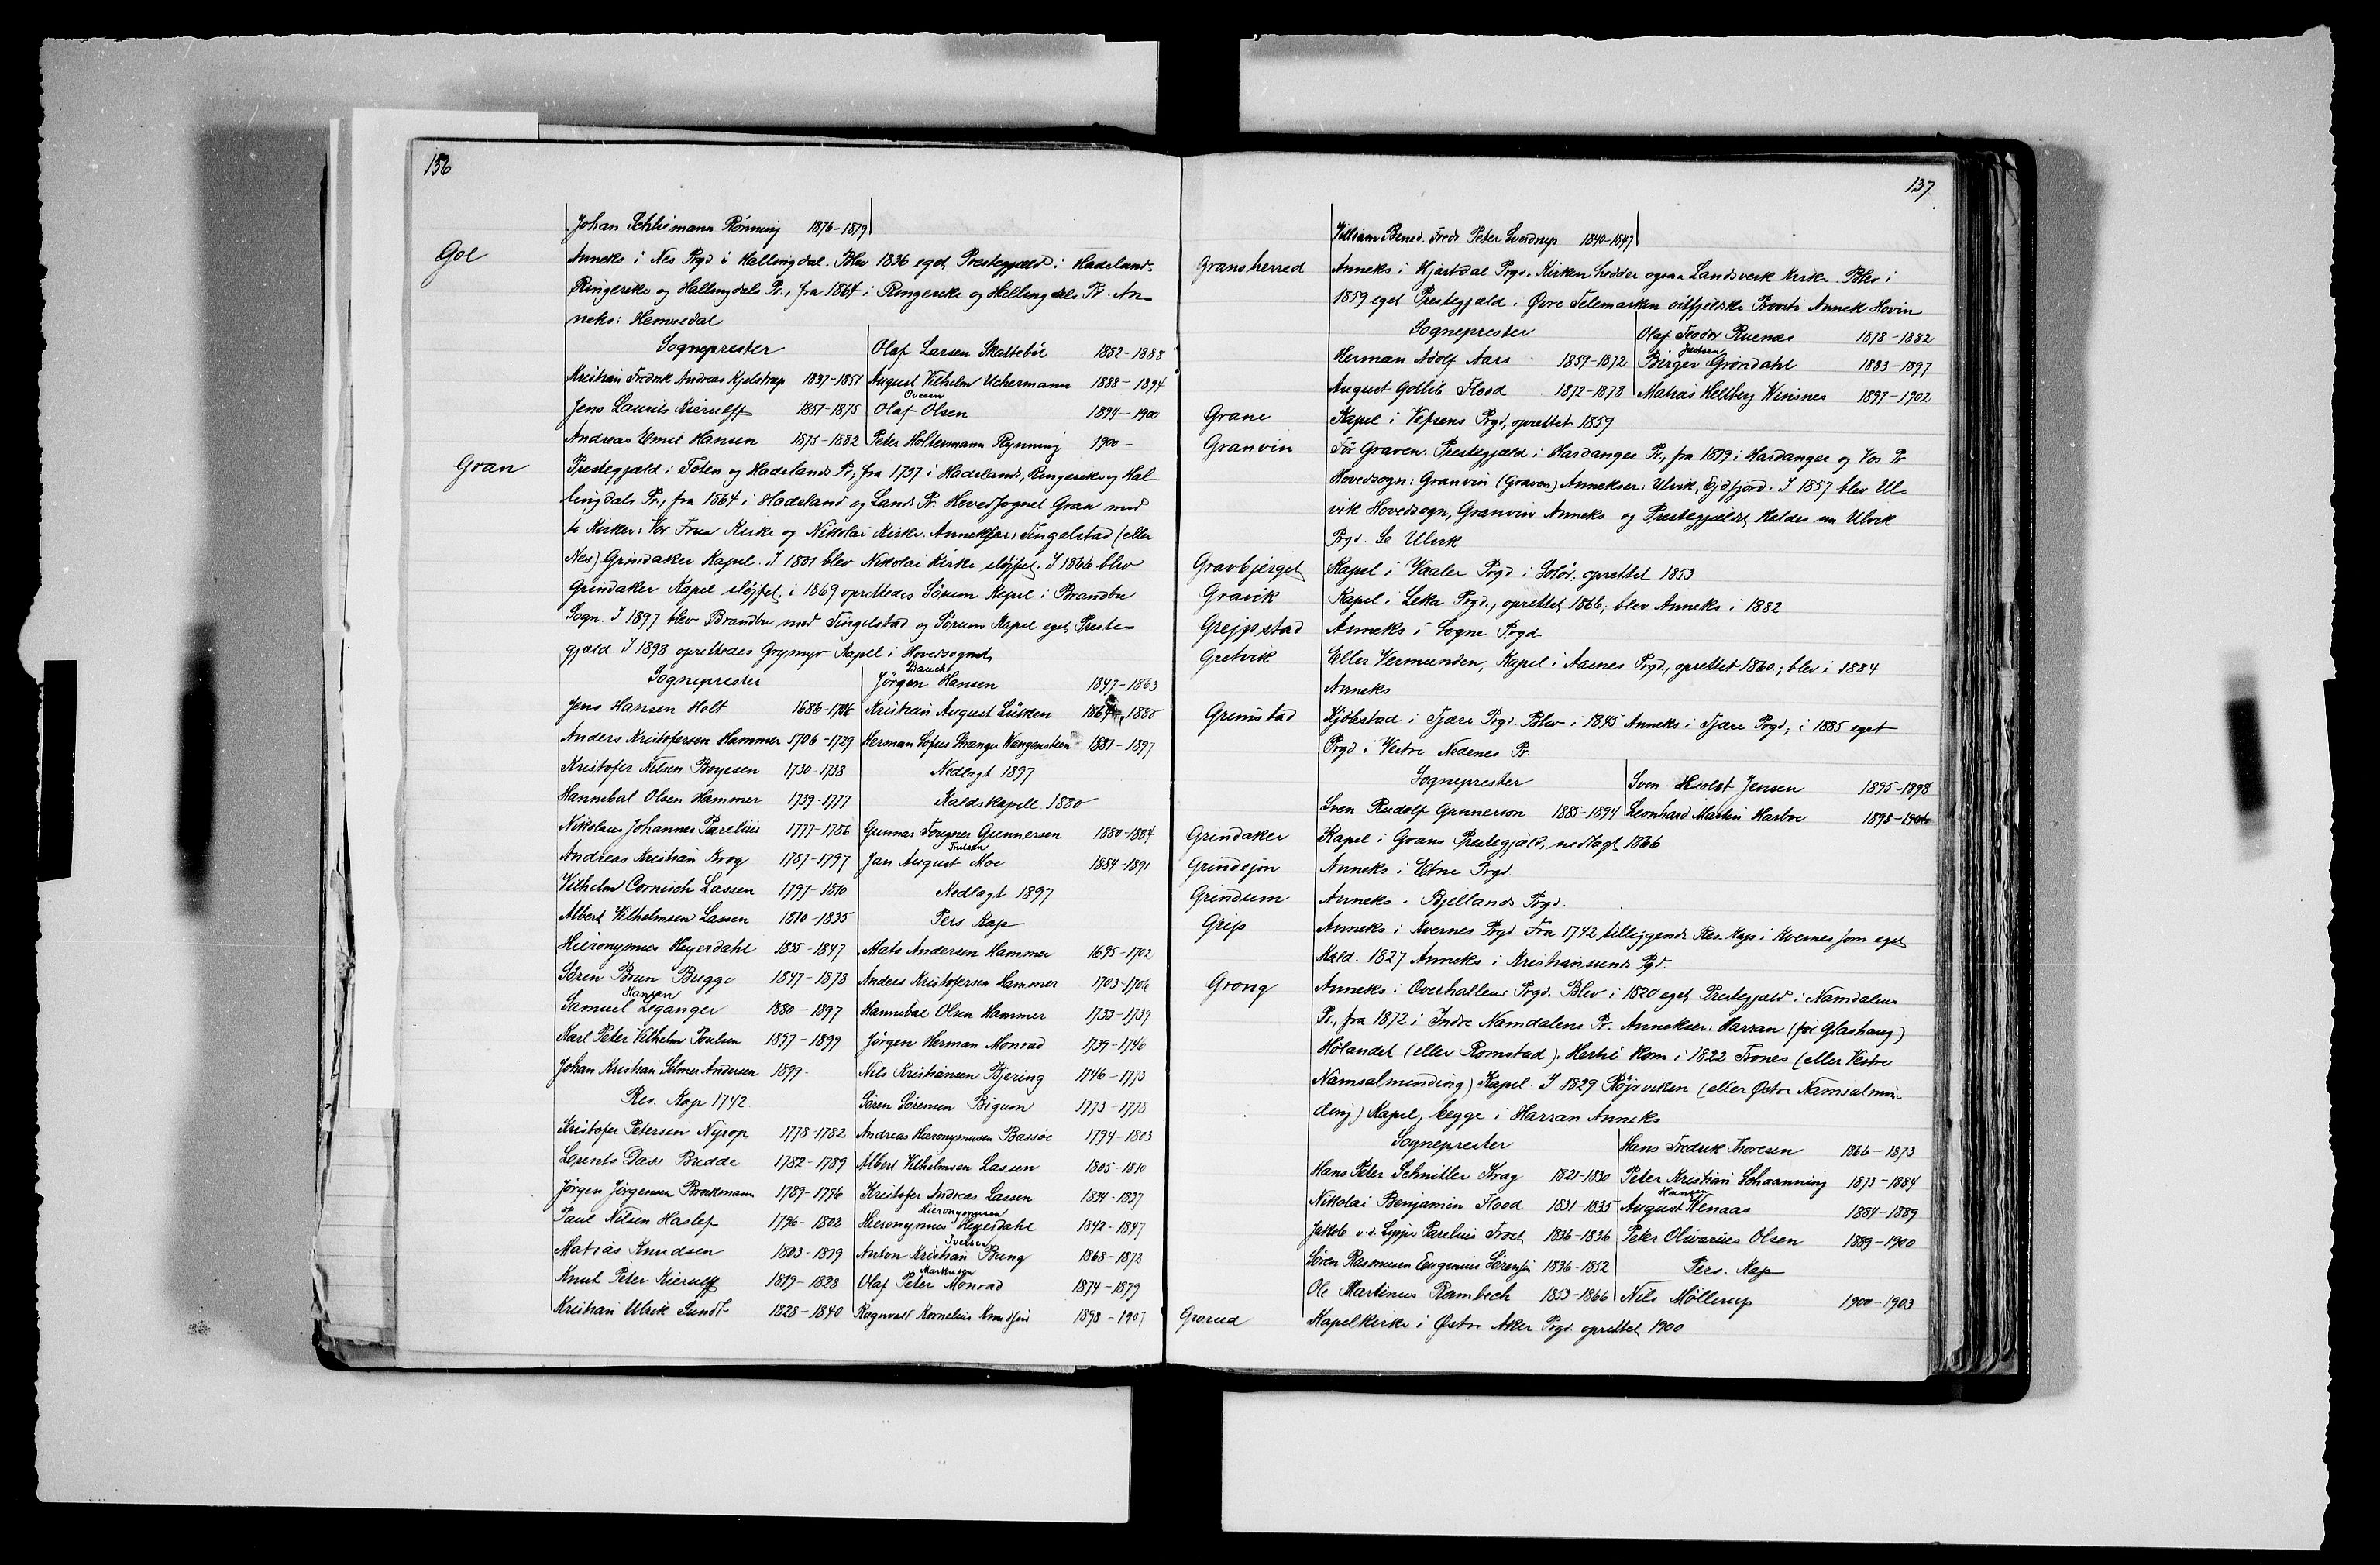 136
Johan Schliemann Rönning 1876-1879
Gol
Anneks i Nes Prgd i Hallingdal. Blev 1836 eget Prestegjæld i Hadeland-
Ringerike og Hallingdals Pr., fra 1864 i Ringerike og Hallingdals Pr. An-
neks: Hemsedal
Sogneprester
Kristian Fredrik Andreas Kjelstrup 1837-1851
Jens Laurits Kierulff 1851-1875
Andreas Emil Hansen 1875-1882
Olaf Larsen Skattebøl 1882-1888
August Vilhelm Uchermann 1888-1894
Ovesen
Olaf Olsen 1894-1900
Peter Holtermann Rynning 1900-
Gran
Prestegjæld i Toten og Hadelands Pr, fra 1737 i Hadelands, Ringerike og Hal-
lingdals Pr., fra 1864 i Hadeland og Lands Pr. Hovedsognet Gran med
to Kirker: Vor Frue Kirke og Nikolai Kirke. Annekser: Tingelstad (eller
Nes) Grindaker Kapel. I 1801 blev Nikolai Kirke sløjfet. I 1866 blev
Grindaker Kapel sløjfet, i 1869 oprettedes Sörum Kapel i Brandbu
Sogn. I 1897 blev Brandbu med Tingelstad og Sörum Kapel eget Preste-
gjæld. I 1898 oprettedes Grymyr Kapel i Hovedsognet
Sogneprester
Jens Hansen Holt 1686-1706
Anders Kristofersen Hammer 1706-1729
Kristofer Nilsen Boyesen 1730-1738
Hannibal Olsen Hammer 1739-1777
Nikolaus Johannes Parelius 1777-1786
Andreas Kristian Krog 1787-1797
Vilhelm Cornisch Lassen 1797-1810
Albert Vilhelmsen Lassen 1810-1835
Hieronymus Heyerdahl 1835-1847
Sören Brun Bugge 1847-1878
Hansen
Samuel Leganger 1880-1897
Karl Peter Vilhelm Poulsen 1897-1899
Johan Kristian Selmer Andersen 1899-
Res. Kap 1742
Kristofer Petersen Nyrop 1778-1782
Lorents Dass Budde 1782-1789
Jörgen Jörgensen Brockmann 1789-1796
Paul Nilsen Haslef 1796-1802
Matias Knudsen 1803-1819
Knut Peter Kierulff 1819-1828
Kristian Ulrik Sundt 1828-1840
Bauch
Jörgen Hansen 1847-1863
Kristian August Lütken 1864-1880
Herman Sofus Stranger Wangensteen 1881-1897
Nedlagt 1897
Kaldskapell. 1880
Gunnar Fougner Gunnersen 1880-1884
Jan August Moe 1884-1891
Nedlagt 1897
Pers Kap
Mats Andersen Hammer 1695-1702
Anders Kristofersen Hammer 1703-1706
Hannibal Olsen Hammer 1733-1739
Jörgen Herman Monrad 1739-1746
Nils Kristiansen Bjering 1746-1773
Sören Sörensen Bigum 1773-1778
Andreas Hieronymusen Bassöe 1794-1803
Albert Vilhelmsen Lassen 1805-1810
Kristofer Andreas Lassen 1834-1837
Hieronymusen
Hieronymus Heyerdahl 1842-1847
Ivelsen
Anton Kristian Bang 1868-1872
Markusen
Olaf Peter Monrad 1874-1879
Ragnvald Kornelius Knudsen 1898-1907
137
William Bened. Fredr Peter Sverdrup 1840-1847
Gransherred
Anneks i Hjartdal Prgd. Kirken hedder ogsaa Landsverk Kirke. Blev i
1859 eget Prestegjæld i Øvre Telemarken østfjelske Provsti Annek Hovin
Sogneprester
Herman Adolf Aars 1859-1872
August Gotlib Flood 1872-1878
Olaf Teodor Ruenæs 1878-1882
Justsen
Birger Gröndahl 1883-1897
Matias Hellberg Winsnes 1897-1902
Grane
Kapel i Vefsens Prgd, oprettet 1859
Granvin
För Graven. Prestegjæld i Hardanger Pr., fra 1879 i Hardanger og Vos Pr
Hovedsogn: Granvin (Graven) Annekser: Ulvik, Ejdfjord. I 1857 blev Ul-
vik Hovedsogn, Granvin Anneks og Prestegjældet kaldes nu Ulvik
Prgd. Se Ulvik
Gravbjerget
Kapel i Vaaler Prgd i Solör, oprettet 1853
Gravik
Kapel i Leka Prgd., oprettet 1866; blev Anneks i 1882
Grejpstad
Anneks i Sogne Prgd
Gretvik
Eller Vermunden, Kapel i Aasnes Prgd., oprettet 1860; blev i 1884
Anneks
Grimstad
Kjöbstad i Fjære Prgd. Blev i 1845 Anneks i Fjære Prgd, i 1885 eget
Prgd i Vestre Nedenes Pr.
Sogneprester
Sven Rudolf Gunnerson 1885-1894
Sven Holst Jensen 1895-1898
Leonhard Martin Harboe 1898-
Grindaker
Kapel i Grans Prestegjæld, nedlagt 1866
Grindejm
Anneks i Etne Prgd
Grindum
Anneks i Bjellands Prgd.
Grip
Anneks i Kvernes Prgd. Fra 1742 tilliggende Res. Kap i Kvernes som eget
Kald. 1827 Anneks i Kristiansunds Pgd.
Grong
Anneks i Overhallens Prgd. Blev i 1820 eget Prestegjæld i Namdalens
Pr., fra 1872 i Indre Namdalens Pr. Annekser: Harran (för Glashaug)
Hölandet (eller Romstad). Hertil kom i 1822 Trones (eller Vestre
Namsalmending) Kapel. I 1829 Röjrviken (eller Østre Namsalmin-
ding) Kapel, begge i Harran Anneks
Sogneprester
Hans Peter Schnitler Krag 1821-1830
Nikolai Benjamin Flood 1831-1835
Jakob v.d. Lippe Parelius Frost 1836-1836
Sören Rasmussen Eugenius Sörensen 1836-1852
Ole Martinus Rambech 1853-1866
Hans Fredrik Thoresen 1866-1873
Peter Kristian Schaanning 1873-1884
Hansen
August Wenaas 1884-1889
Peter Olivarius Olsen 1889-1900
Pers. Kap
Nils Möllerup 1900-1903
Grorud
Kapelkirke i Østre Aker Prgd. oprettet 1900